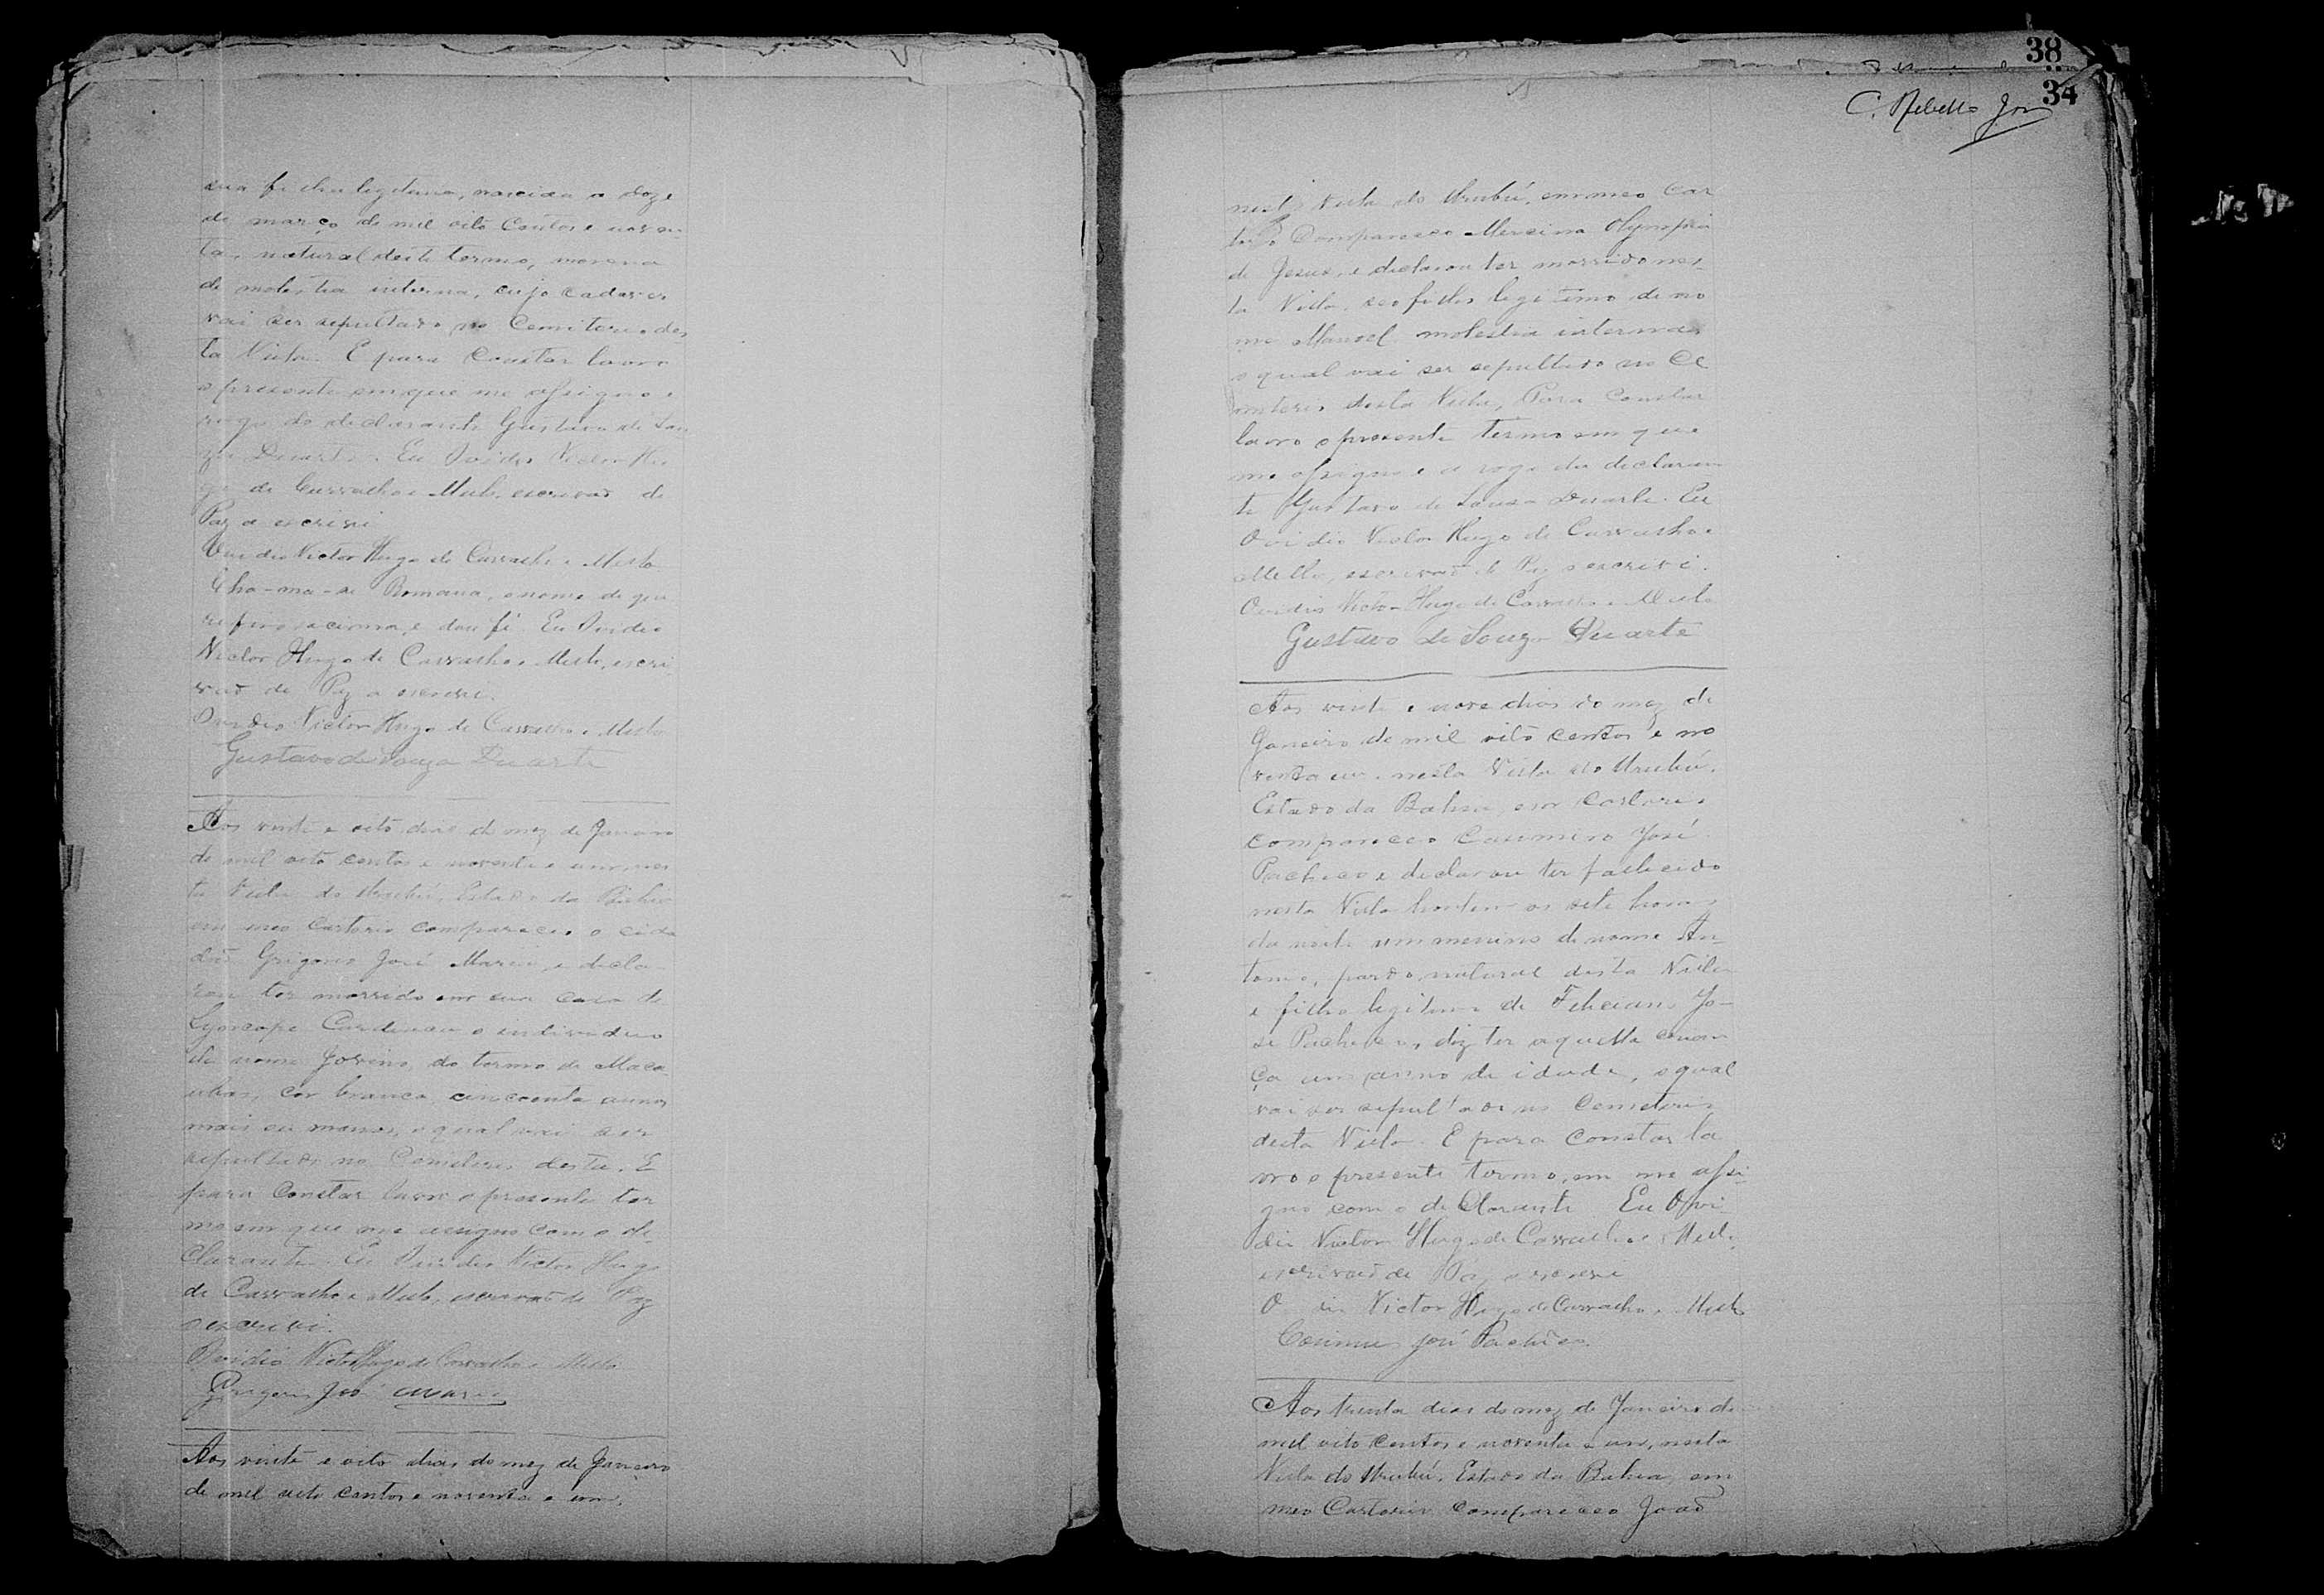 sua filha legitima, nascida a doze
de março de mil oito centos e noven
ta, natural deste termo, morena
de molestia interna, cujo cadaver
vai ser sepultado no Cemiterio des
ta Villa. E para Constar lavro
o presente em que me assigno e
rogo do declarante Gustavo de Sou
za Duarte. Eu Ovidio Victor Hu
go de Carvalho e Mello, escrivaõ de
Paz o escrivi
Ovidio Victor Hugo de Carvalho e Mello
Cha-ma-se Romana, o nome de que
acima, e dou fé. Eu Ovidio
Victor Hugo de Carvalho e Mello, escri
vaõ de Paz o escrivi.
Ovidio Victor Hugo de Carvalho e Mello
Gustavo de Souza Duarte
Aos vinte e oito dias do mez de Janeiro
de mil oito centos e noventa e um, nes
ta Villa do Urubú, Estado da Bahia
em meo Cartorio compareceo o cida
dão José Maria, e decla
rou ter morrido em sua casa de
Cardeneu o individuo
de nome Jovino, do termo de Maca
ubas, cor branca, cincoenta annos
mais ou menos, o qual vai ser
sepultado no Cemiterio desta. E
para Constar lavro o presente ter
mo em que me assigno com o de
clarante. Eu Ovidio Victor Hugo
de Carvalho e Mello, escrivaõ de Paz
o escrivi.
Ovidio Victor Hugo de Carvalho e Mello
José Maria
Aos vinte e oito dias do mez de Janeiro
de mil oito centos e noventa e um,
38
34
C. Rebello
nesta Villa do Urubú, em meo Car
torio Compareceo Mercina Olympia
de Jesus, e declarou ter morrido nes
ta Villa, seo filho legitimo de no
me Manoel molestia interna
o qual vai ser sepultado no Ce
miterio desta Villa, Para Constar
lavro o presente termo em que
me assigno e a rogo da declaran
te Gustavo de Souza Duarte. Eu
Ovidio Victor Hugo de Carvalho e
Mello, escrivaõ de Paz o escrivi.
Ovidio Victor Hugo de Carvalho e Mello
Gustavo de Souza Duarte
Aos vinte e nove dias do mez de
Janeiro de mil oito centos e no
venta um. nesta Villa do Urubú.
Estado da Bahia, em Cartorio
compareceo Casimiro José
Pacheco e declarou ter fallecido
nesta Villa hontem as sete horas
da noite um menino de nome An
tonio, pardo, natural desta Villa
e filho legitimo de Feliciano Jo-
sé Pacheco, diz ter aquella crian
ça um anno de idade, o qual
vai ser sepultado no Cemeterio
desta Villa. E para Constar la
vro o presente termo, em me assi
gno com o declarante. Eu Ovi
dio Victor Hugo de Carvalho e Mello
escrivaõ de Paz o escrivi
Victor Hugo de Carvalho e Mello
José Pacheco
Aos trinta dias do mez de Janeiro de
mil oito centos e noventa e um, nesta
Villa do Urubú, Estado da Bahia, em
meo Cartorio compareceo Joaõ